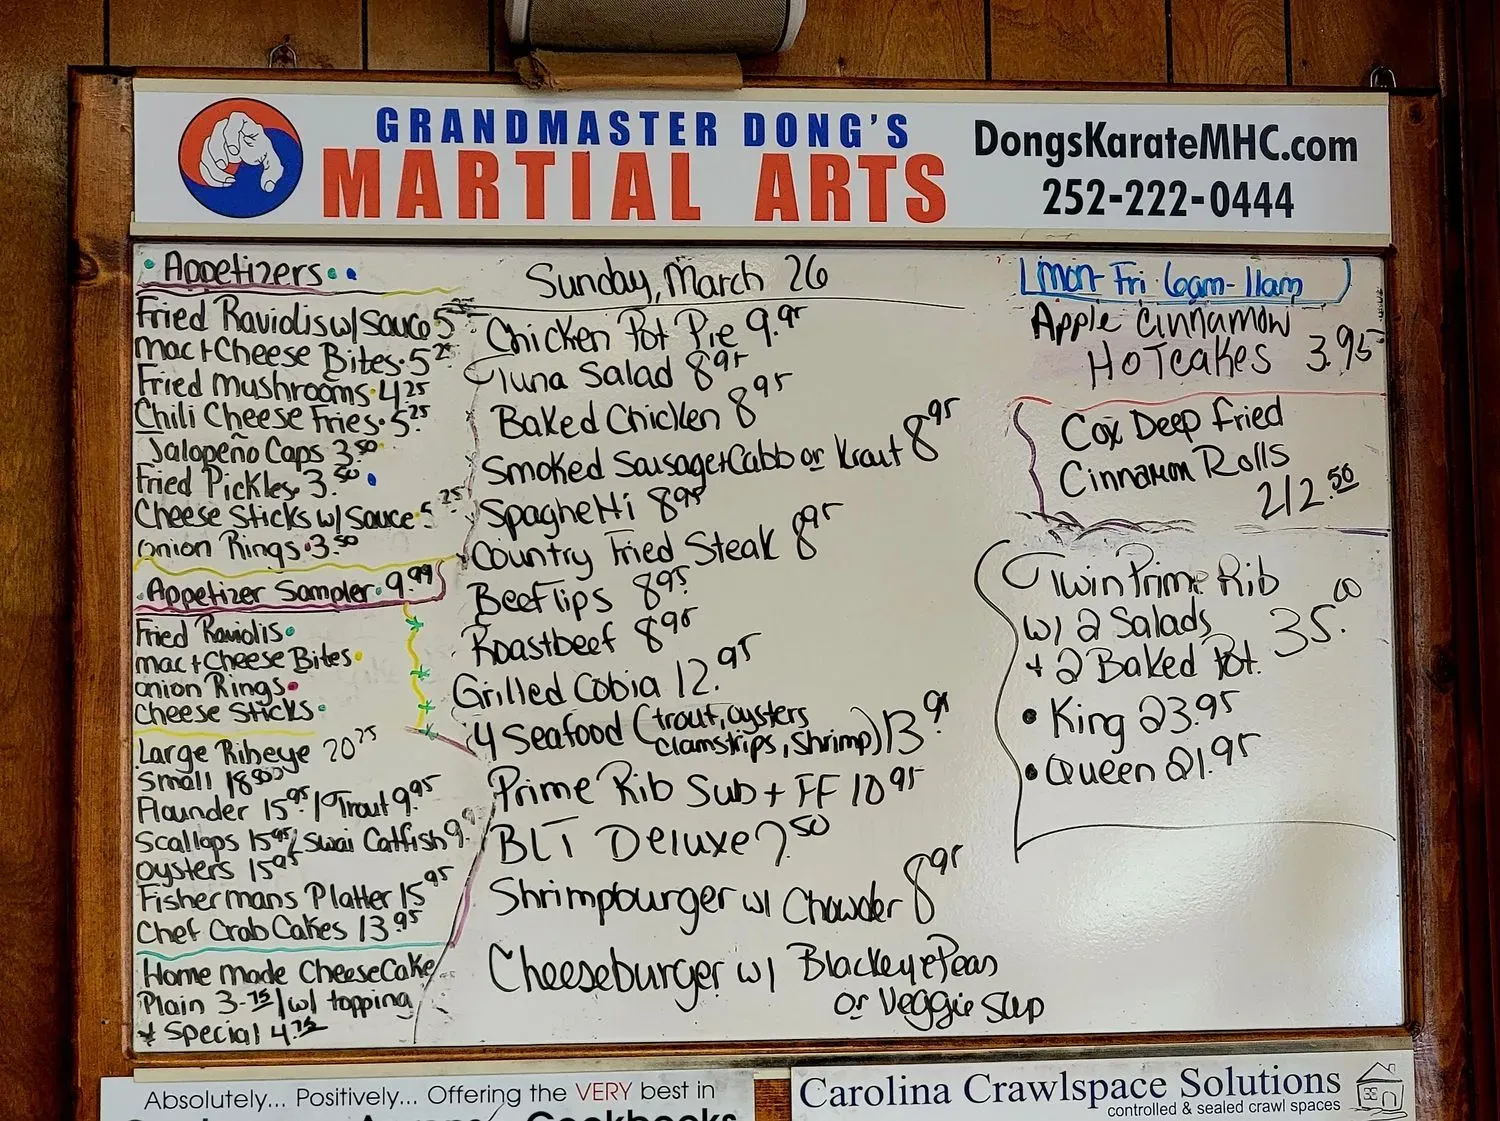 GRANDMASTER DONG'S
MARTIAL ARTS
DongsKarateMHC.com
252-222-0444
Appetizers
Fried Raviolis w/ Sauce 5.25
Mac + Cheese Bites 5.25
Fried Mushrooms 4.25
Chili Cheese Fries 5.25
Jalapeño Caps 3.50
Fried Pickles 3.50
Cheese Sticks w/ Sauce 5.25
Onion Rings 3.50
Appetizer Sampler 9.99
Fried Raviolis
Mac + Cheese Bites
Onion Rings
Cheese Sticks
Large Ribeye 20.75
Small 18.00
Flounder 15.95 / Trout 9.95
Scallops 15.95 / Swai Catfish 9.
Oysters 15.95
Fishermans Platter 15.95
Chef Crab Cakes 13.95
Home made CheeseCake
Plain 3.75 / w/ topping
+ Special 4.75
Sunday, March 26
Chicken Pot Pie 9.95
Tuna Salad 8.95
Baked Chicken 8.95
Smoked Sausage + Cabb or Kraut 8.95
Spaghetti 8.95
Country Fried Steak 8.95
Beef Tips 8.95
Roastbeef 8.95
Grilled Cobia 12.95
4 Seafood (trout, oysters
clamstrips, Shrimp) 13.95
Prime Rib Sub + FF 10.95
BLT Deluxe 7.50
Shrimpburger w/ Chowder 8.95
Cheeseburger w/ Blackeye Peas
or Veggie Sup
Mon-Fri 6am-11am
Apple Cinnamon
HOTcakes 3.95
Cox Deep Fried
Cinnamon Rolls
2/2.50
Twin Prime Rib
w/ 2 Salads
+ 2 Baked Pot. 35.00
• King 23.95
• Queen 21.95
Absolutely... Positively... Offering the VERY best in
Carolina Crawlspace Solutions
controlled & sealed crawl spaces